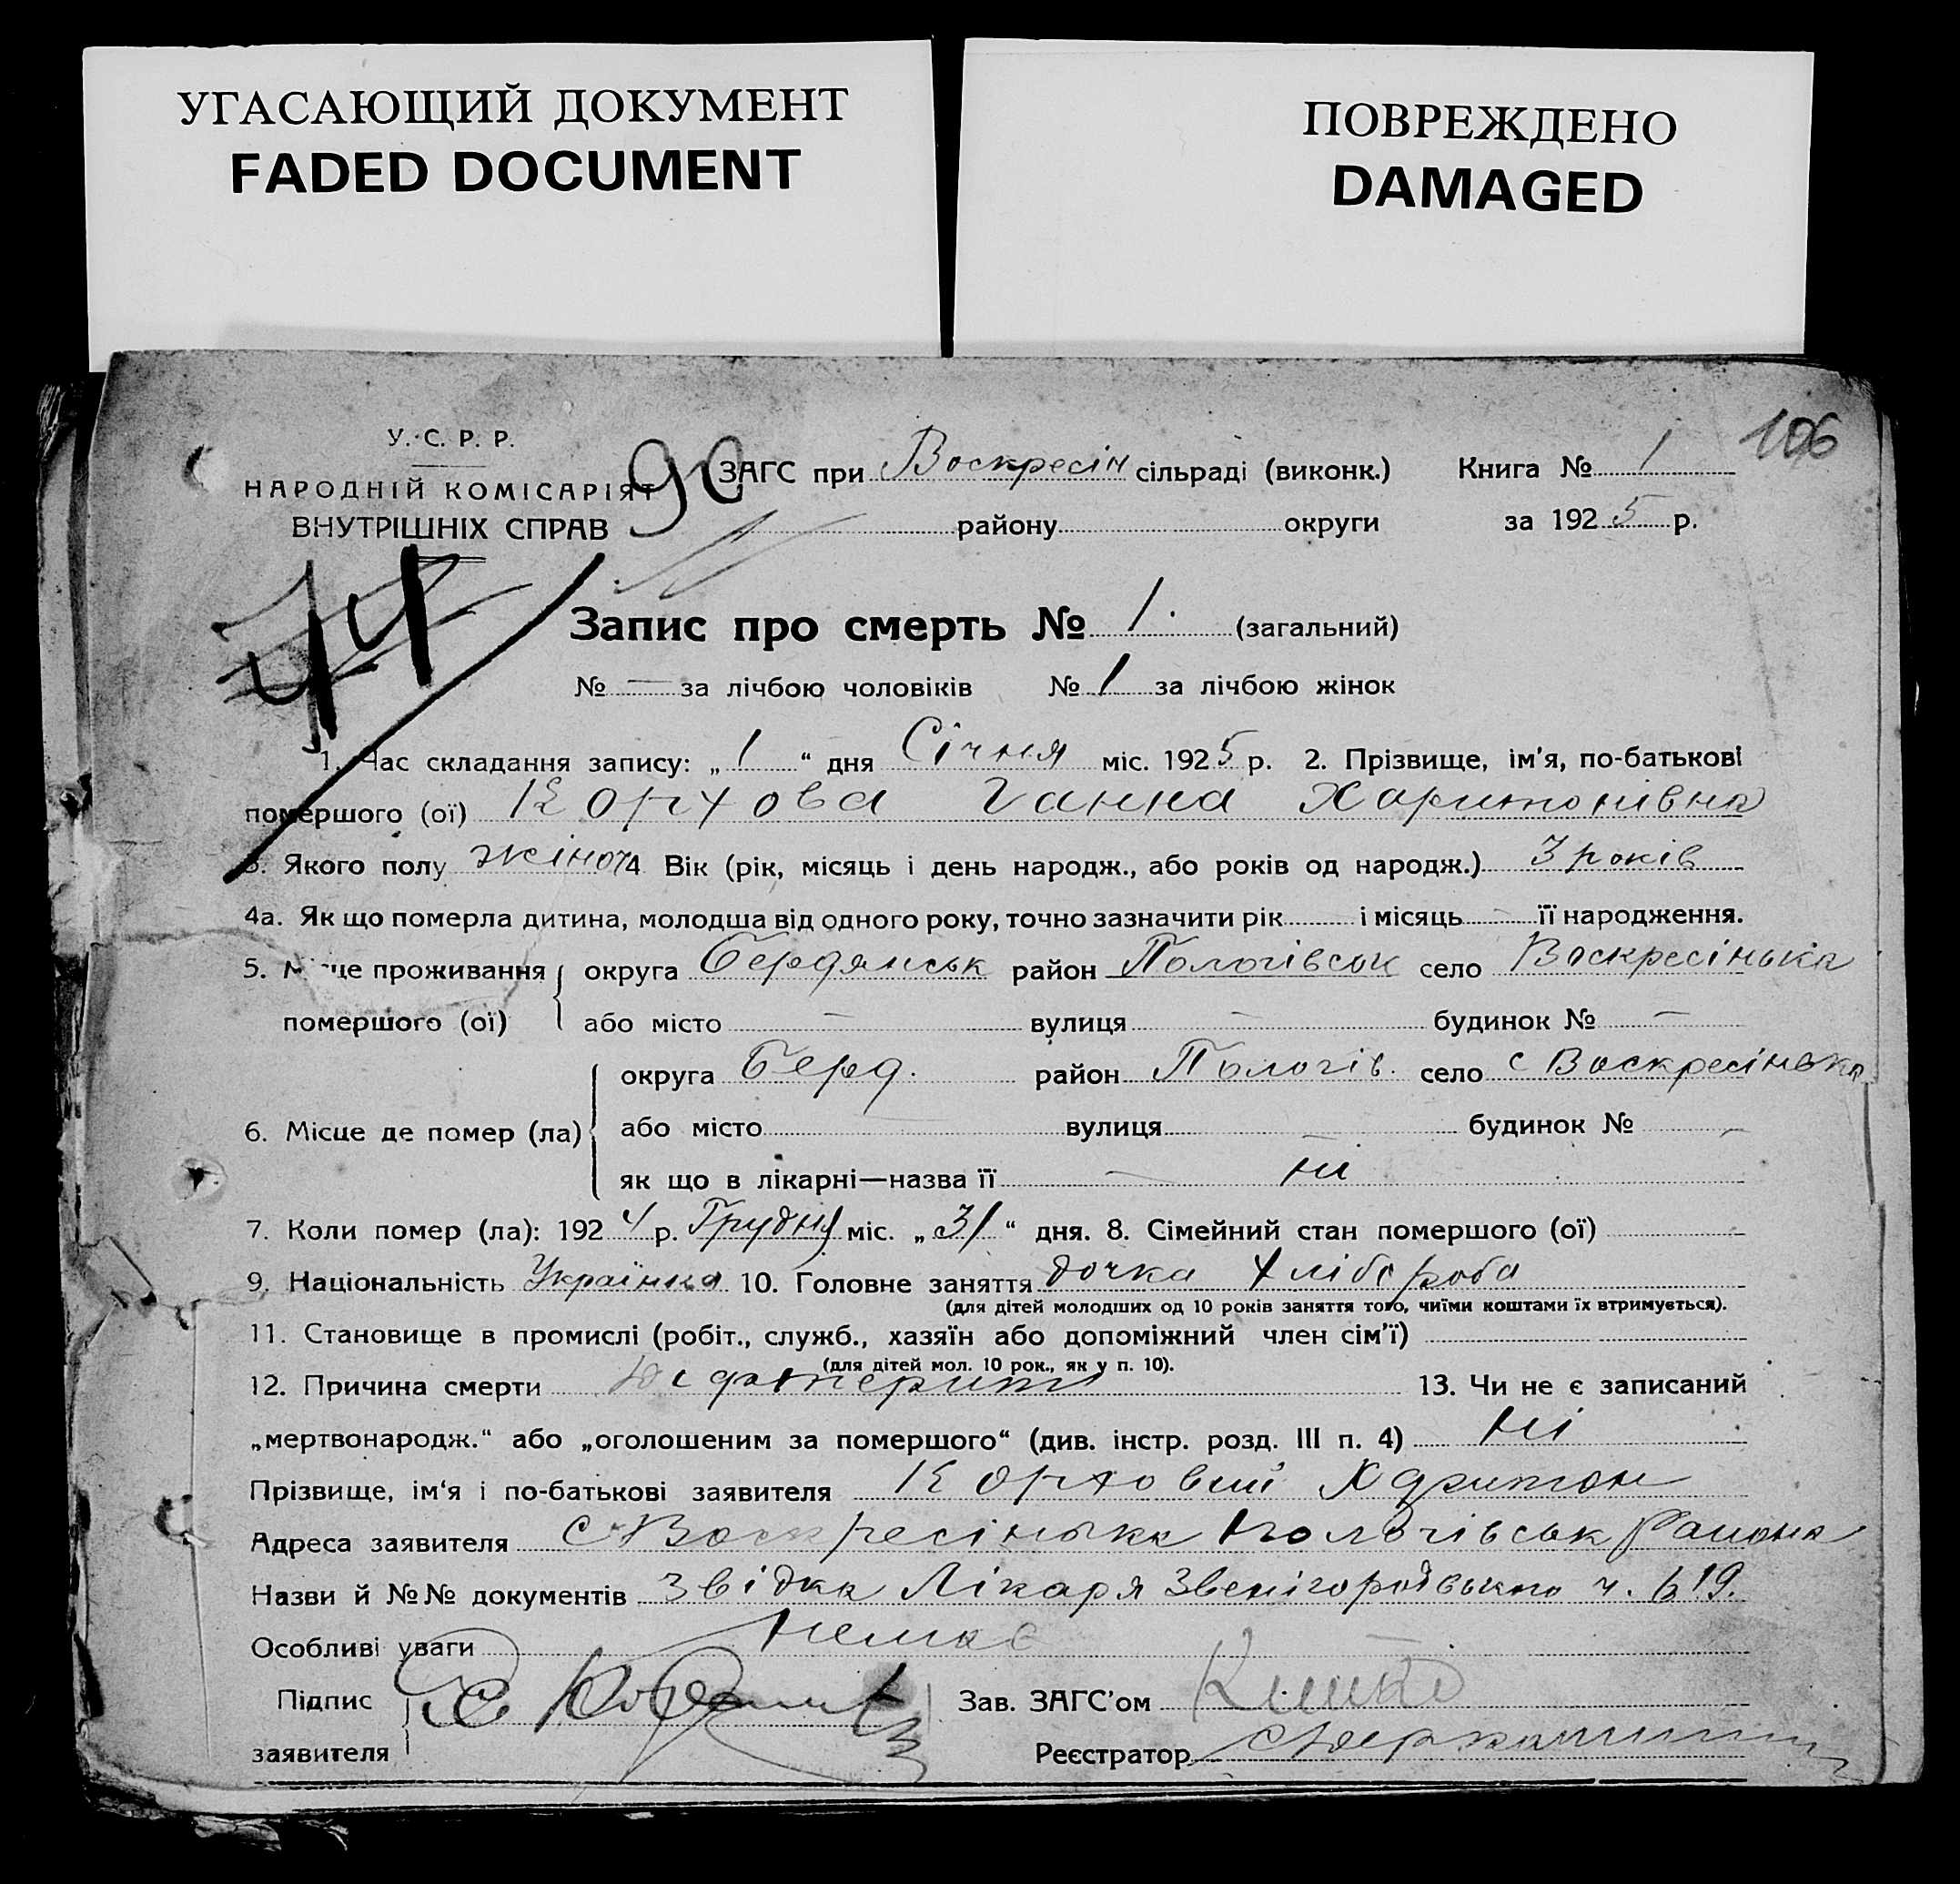 УГАСАЮЩИЙ ДОКУМЕНТ
FADED DOCUMENT
ПОВРЕЖДЕНО
DAMAGED
106
У. С. Р. Р.
НАРОДНІЙ КОМІСАРІЯТ
ВНУТРІШНІХ СПРАВ
90
44
ЗАГС при Воскресін сільраді (виконк.) Книга № 1
району округи за 1925 р.
Запис про смерть № 1. (загальний)
№ — за лічбою чоловіків № 1 за лічбою жінок
1. Час складання запису: „1“ дня Січня міс. 1925 р. 2. Прізвище, ім'я, по-батькові
помершого (ої) Корхова Ганна Харитонівна
3. Якого полу жіноч 4 Вік (рік, місяць і день народж., або років од народж.) 3 років
4а. Як що померла дитина, молодша від одного року, точно зазначити рік і місяць — її народження.
5. Місце проживання округа Бердянськ район Пологівськ село Воскресінька
помершого (ої) або місто — вулиця — будинок № —
округа Берд. район Пологів. село с Воскресінька
6. Місце де помер (ла) або місто вулиця — будинок № —
як що в лікарні—назва її — ні
7. Коли помер (ла): 1924 р. Грудня міс. „31“ дня. 8. Сімейний стан помершого (ої) —
9. Національність Українка 10. Головне заняття дочка хлібороба
(для дітей молодших од 10 років заняття того, чиїми коштами їх втримується).
11. Становище в промислі (робіт., служб., хазяїн або допоміжний член сім'ї)
(для дітей мол. 10 рок., як у п. 10).
12. Причина смерти Дефтерит 13. Чи не є записаний
„мертвонародж.“ або „оголошеним за помершого“ (див. інстр. розд. III п. 4) ні
Прізвище, ім'я і по-батькові заявителя Корховий Харитон
Адреса заявителя с Воскресінька Пологівськ Района
Назви й №№ документів Звідка Лікаря Звенігородського ч. 619.
Особливі уваги Немає
Підпис
заявителя
Зав. ЗАГС'ом
Реєстратор